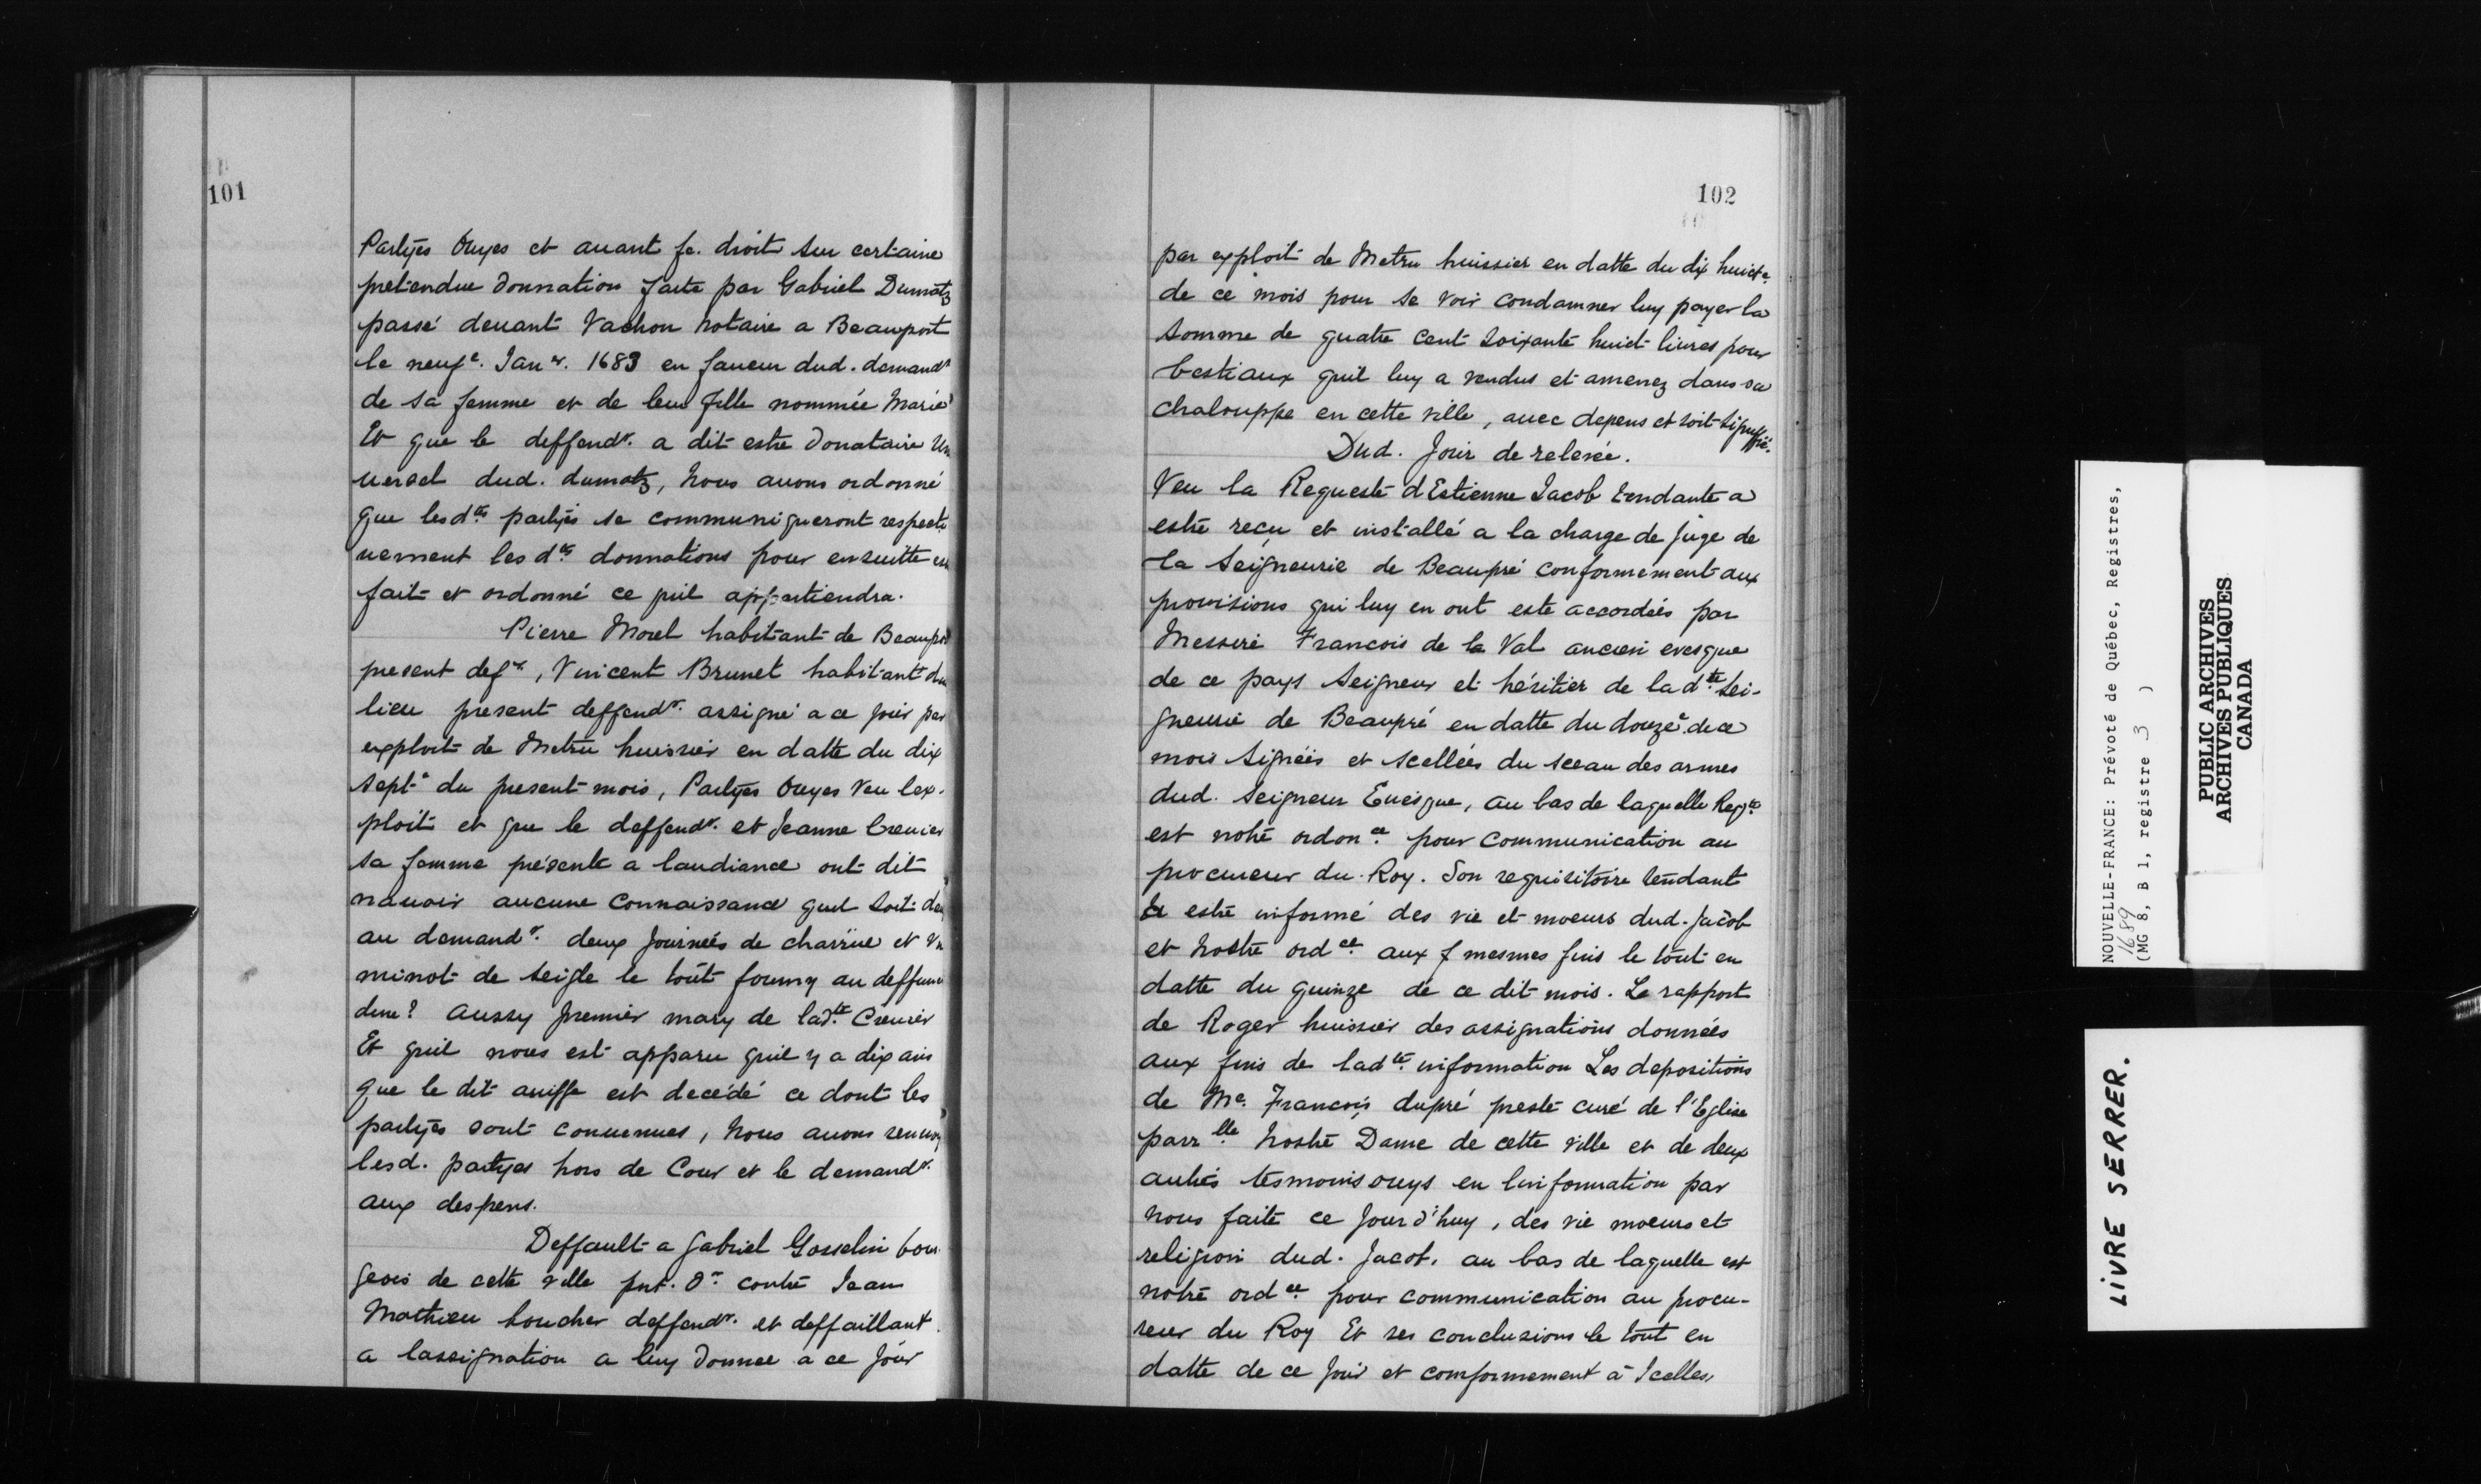 101
Partyes Ouyes et auant fe. droit sur certaine
pretendue donnation faite par Gabriel Dumatz
passé deuant Vachon notaire a Beauport
le neufe. Janer. 1683 en faueur dud. demandr
de sa femme et de leur fille nommée Marie
Et que le deffendr. a dit estre donataire Un
uersel dud. dumatz, Nous auons ordonné
que lesdtes partyes se communiqueront respecti
uement les dtes donnations pour ensuitte en
fait et ordonné ce quil appartiendra.
Pierre Morel habitant de Beaupré
present defr, Vincent Brunet habitant du
lieu present deffendr. assigné a ce jour par
exploit de Metru huissier en datte du dix
septe du present mois, Partyes Ouyes Veu lex-
ploit et que le deffendr. et Jeanne Creuier
sa femme présente a laudiance ont dit
nauoir aucune Connaissance quil soit deu
au demandr. deux Journées de charrüe et Vn
minot de seigle le tout fourny au deffunct
dune? aussy premier mary de ladte Creuier
Et quil nous est apparu quil y a dix ans
que le dit auiffe est decédé ce dont les
partyes sont conuenues, Nous auons renuoyé
lesd. partyes hors de Cour et le demandr.
aux despens.
Deffault a Gabriel Gosselin bour
geois de cette ville pnt. dr. contre Jean
Mathieu boucher deffendr. et deffaillant
a lassignation a luy donnee a ce Jour
102
par exploit de Metru huissier en datte du dix huicte.
de ce mois pour se voir condamner luy payer la
somme de quatre cent soixante huict liures pour
bestiaux quil luy a vendus et amenez dans sa
chalouppe en cette ville, auec depens et soit signiffié.
Dud. Jour de relevée.
Veu la Requeste d'Estienne Jacob tendante a
estre reçu et installé a la charge de Juge de
la Seigneurie de Beaupré conformement aux
provisions qui luy en ont este accordées par
Messire François de la Val ancien evesque
de ce pays Seigneur et héritier de la dte Sei-
gneurie de Beaupré en datte du douze. de ce
mois signées et scellées du sceau des armes
dud. Seigneur Euesque, au bas de laquelle Reqte
est notre ordonce pour communication au
procureur du Roy. Son requisitoire tendant
a estre informé des vie et moeurs dud. Jacob
et Nostre ordce aux f mesmes fins le tout en
datte du quinze de ce dit mois. Le rapport
de Roger huissier des assignations données
aux fins de ladte information Les depositions
de Me. François dupré prestre curé de l'Eglise
parrlle Nostre Dame de cette ville et de deux
autres tesmoins ouys en linformation par
nous faite ce Jourd'huy, des vie moeurs et
religion dud. Jacob. au bas de laquelle est
notre ordce pour communication au procu-
reur du Roy Et ses conclusions le tout en
datte de ce Jour et comformement à Icelles,
NOUVELLE-FRANCE: Prévoté de Québec, Registres,
1689
(MG 8, B 1, registre 3 )
PUBLIC ARCHIVES
ARCHIVES PUBLIQUES
CANADA
LIVRE SERRER.